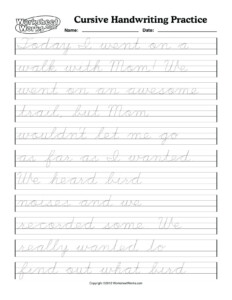 WorksheetWorks.com
Cursive Handwriting Practice
Name: Date:
Today I went on a
walk with Mom! We
went on an awesome
trail, but Mom
wouldnt let me go
as far as I wanted.
We heard bird
noises and we
recorded some. We
really wanted to
find out what bird
Copyright ©2010 WorksheetWorks.com